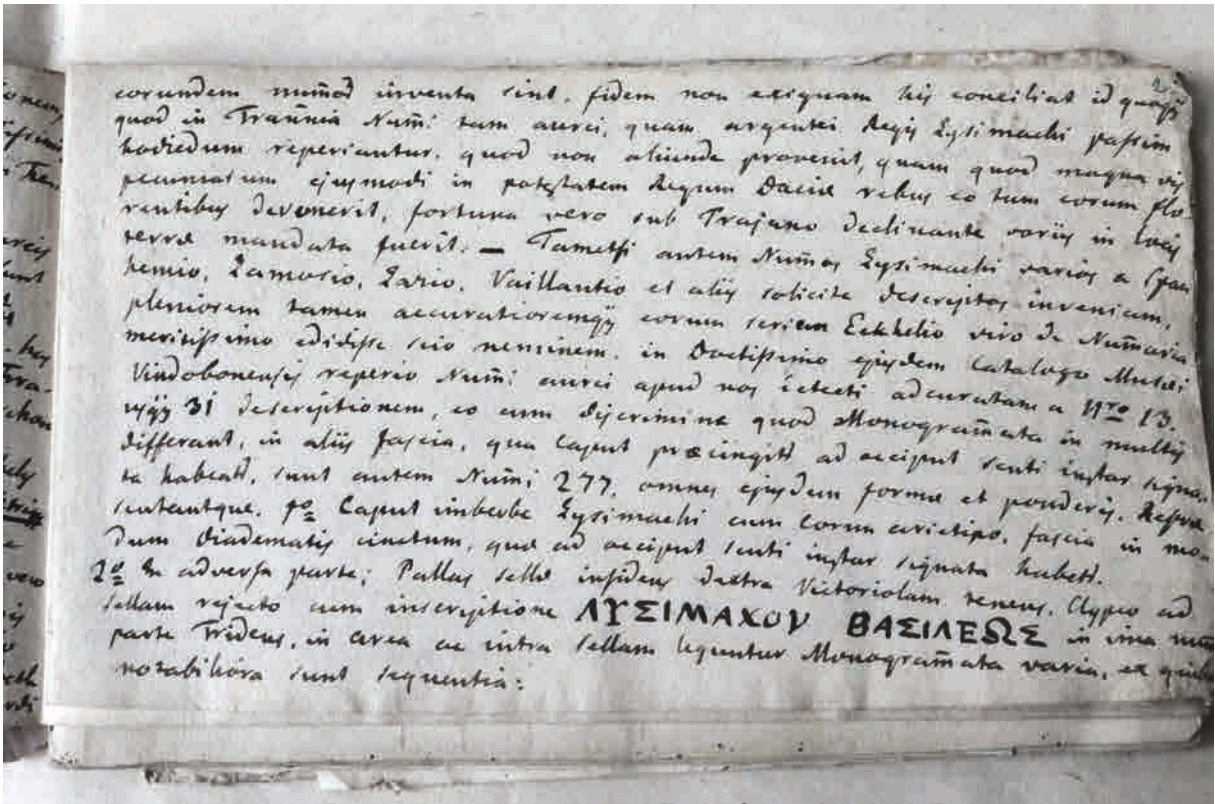 eorundem num̃od inventa sint, fidem non exiguam his conciliat id quoqꝫ
quod in Tran̄nia Num̃i tam aurei, quam argentei Regis Lysimachi passim
hodiedum reperiantur. quod non aliunde provenit, quam quod magna vis
pecuniarum ejusmodi in potestatem Regum Daciæ rebus eo tum eorum flo
rentibus devenerit, fortuna vero sub Trajano declinante variis in locis
terræ mandata fuerit. — Tametsi autem Num̃os Lysimachi varios a Span
hemio, Zamosio, Lazio, Vaillantio et aliis solicite descriptos inveniam,
pleniorem tamen accuratioremqꝫ eorum seriem Eckhelio viro de Num̃aria
meritissimo edidisse scio neminem. in Doctissimo ejusdem Catalogo Musei
Vindobonensis reperio Num̃i aurei apud nos detecti adcuratam a Nro 13.
usqꝫ 31 descriptionem, eo cum discrimine quod Monogram̃ata in multis
differant, in aliis fascia, qua Caput præcingitt ad occiput scuti instar signa
ta habeatt, sunt autem Num̃i 277. omnes ejusdem formæ et ponderis. Repræ
sentantque. 1o Caput imberbe Lysimachi cum Cornu arietino, fascia in mo
dum diadematis cinctum, quæ ad occiput scuti instar signata habett.
2o In adversa parte; Pallas sellæ insidens dextra Victoriolam tenens. Clypeo ad
sellam rejecto cum inscriptione ΛΥΣΙΜΑΧΟΥ ΒΑΣΙΛΕΩΣ in ima num̃i
parte Tridens, in area ac intra sellam leguntur Monogram̃ata varia, ex quibus
notabiliora sunt sequentia: